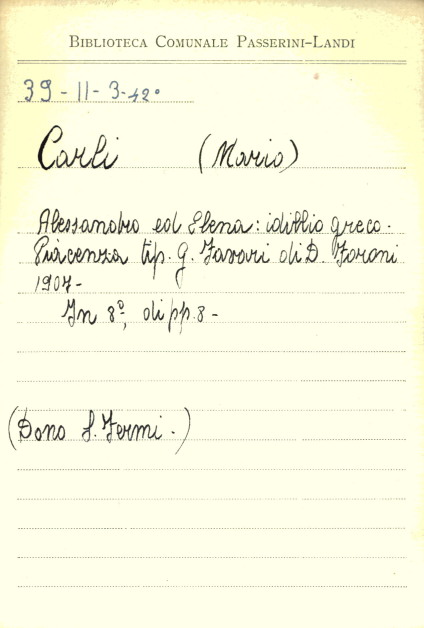 BIBLIOTECA COMUNALE PASSERINI-LANDI
39-11-3-42°
Carli (Mario)
Alessandro ed Elena: idillio greco.
Piacenza tip. G. Favari di D. Foroni
1907-
In 8°, di pp. 8-
(Dono S. Fermi.)